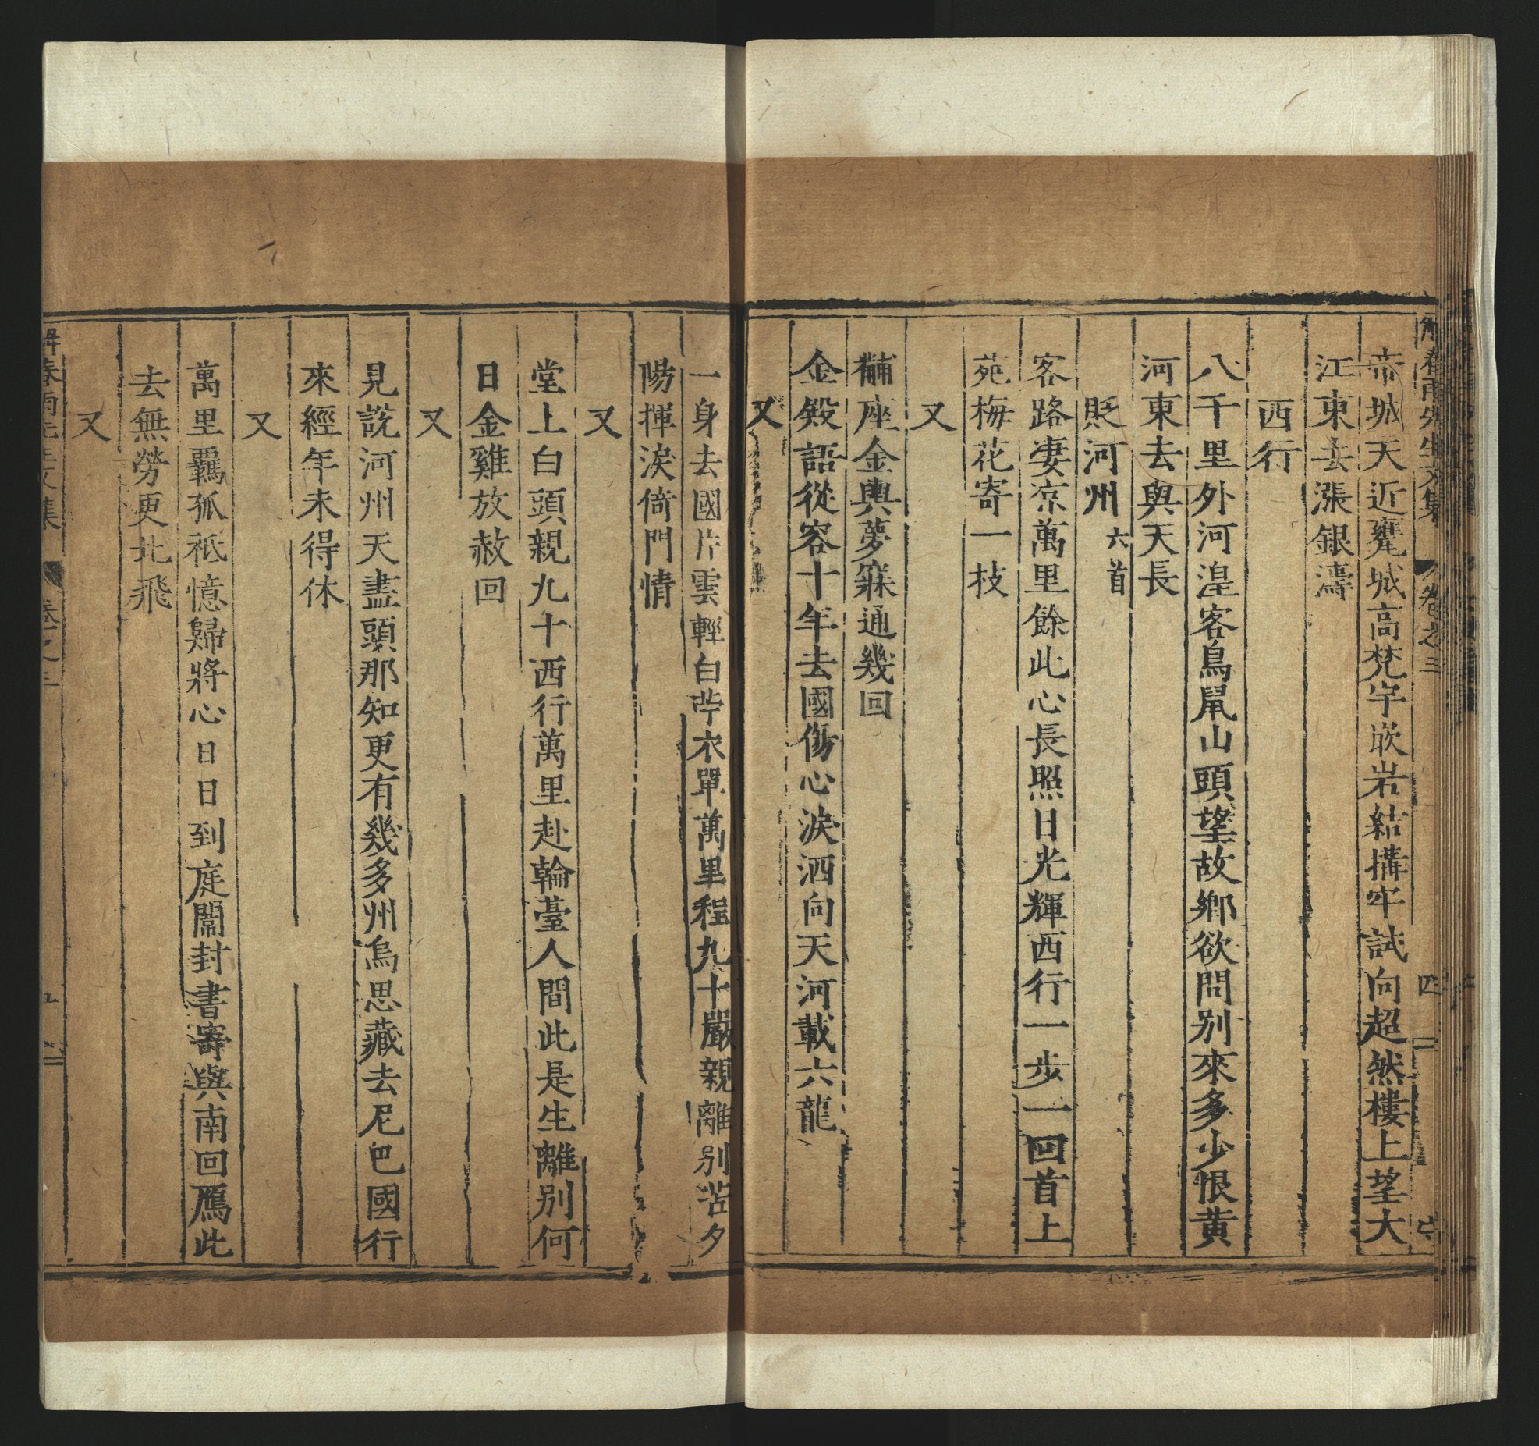 解春雨先生文集 卷之三 四
帝城天近甕城高梵宇嵌岩結搆牢試向超然樓上望大
江東去漲銀濤
西行
八千里外河湟客鳥鼠山頭望故鄉欲問別來多少恨黃
河東去與天長
貶河州六首
客路淒京萬里餘此心長照日光輝西行一步一回首上
苑梅花寄一枝
又
黼座金輿夢寐通幾回
金殿語從容十年去國傷心淚洒向天河載六龍
又
一身去國片雲輕白苧衣單萬里程九十嚴親離別苦夕
陽揮淚倚門情
又
堂上白頭親九十西行萬里赴輪臺人間此是生離別何
日金雞放赦回
又
見説河州天盡頭那知更有幾多州烏思藏去尼巴國行
來經年未得休
又
萬里羈孤祗憶歸將心日日到庭闈封書寄與南回鴈此
去無勞更北飛
又
解春雨先生文集 卷之三